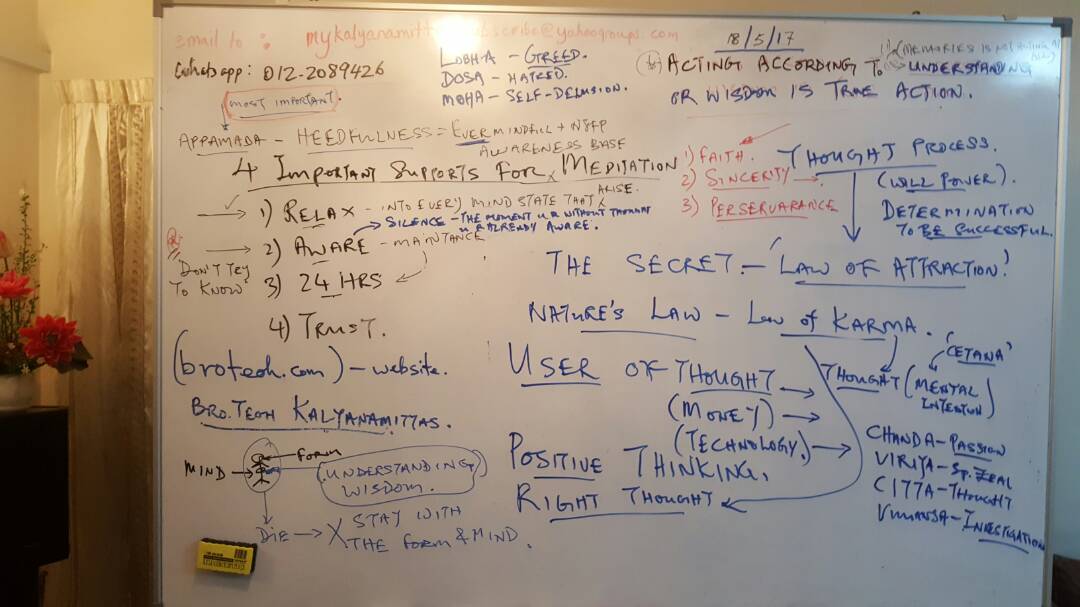 email to : mykalyanamitt subscribe@yahoogroups.com
Whatsapp: 012-2089426
LOBHA - GREED.
DOSA - HATRED.
MOHA - SELF-DELUSION.
18/5/17
ACTING ACCORDING TO UNDERSTANDING
OR WISDOM IS TRUE ACTION.
(MEMORIES IS NOT
most important.
APPAMADA - HEEDFULNESS = EVER MINDFUL + NSFP
AWARENESS BASE
4 IMPORTANT SUPPORTS FOR MEDITATION
1) RELAX - INTO EVERY MIND STATE THAT ARISE.
SILENCE - THE MOMENT U R WITHOUT THOUGHT
U R ALREADY AWARE.
2) AWARE - MAINTANCE
'DON'T TRY
TO KNOW'
3) 24 HRS
4) TRUST.
(broteoh.com) - website.
BRO. TEOH KALYANAMITTAS.
FORM
MIND
UNDERSTANDING
WISDOM.
DIE → X STAY WITH
THE FORM & MIND.
1) FAITH.
2) SINCERITY
3) PERSERVARANCE
THOUGHT PROCESS.
(WILL POWER).
DETERMINATION
TO BE SUCCESSFUL.
THE SECRET - 'LAW OF ATTRACTION!'
NATURE'S LAW - LAW OF KARMA.
'CETANA'
USER OF THOUGHT
THOUGHT (MENTAL
INTENTION)
(MONEY)
(TECHNOLOGY)
POSITIVE THINKING.
RIGHT THOUGHT
CHANDA - PASSION
VIRIYA - SP. ZEAL
CITTA - THOUGHT
VIMANSA - INVESTIGATION